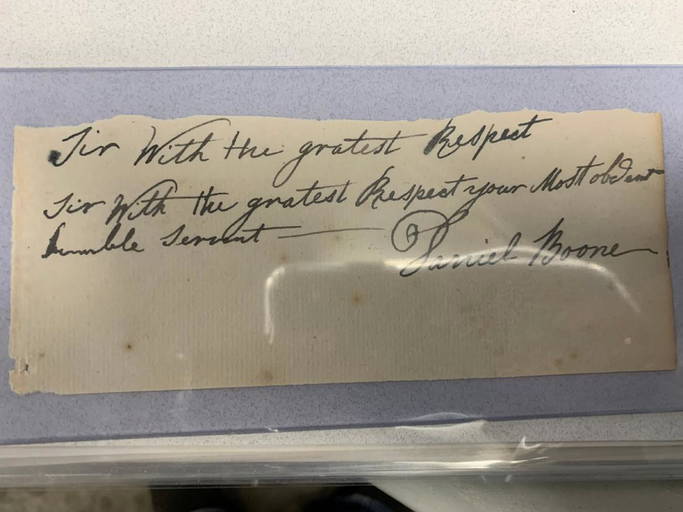 Sir With the gratest Respect
Sir With the gratest Respect your Most obdent
humble Servant
Daniel Boone